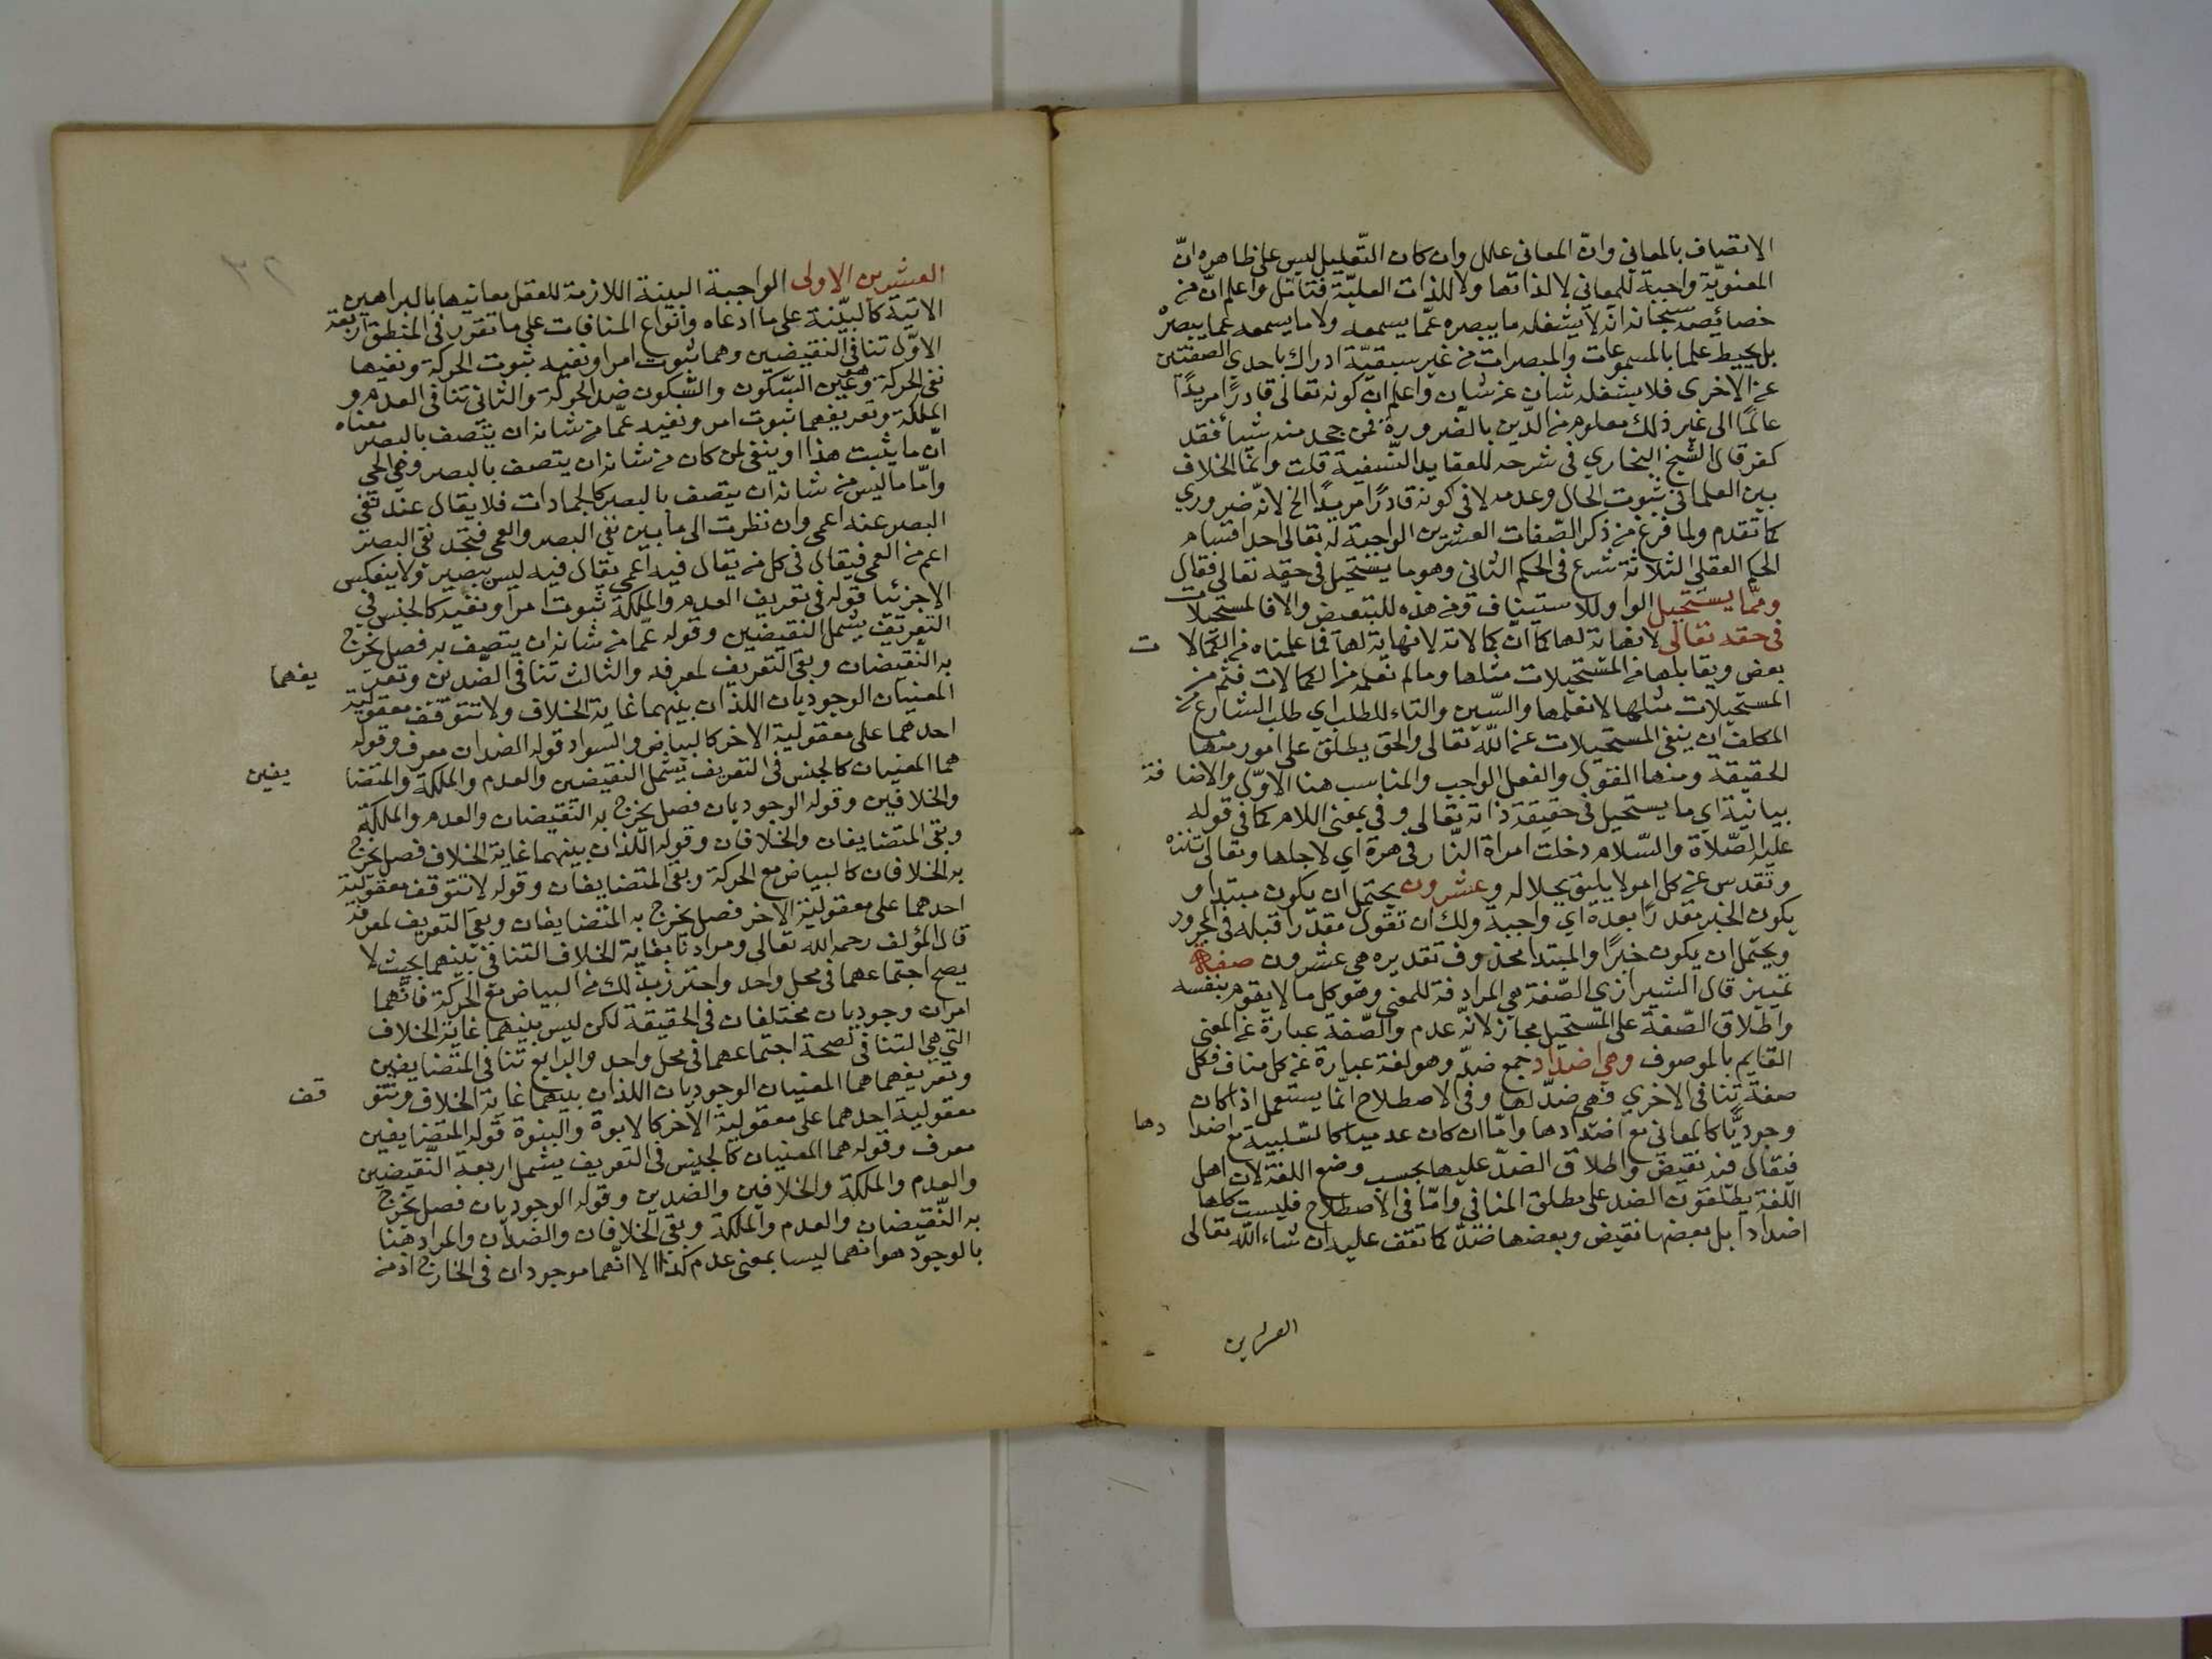 الاتصاف بالمعاني وانّ المعاني علل وان كان التّعليل ليس على ظاهره انّ
المعنويّة واجبة للمعاني لا لذاتها ولا للذات العليّة فتأمّل واعلم انّ من
خصائصه سبحانه انه لا يشغله ما يبصره عمّا يسمعه ولا ما يسمعه عما يبصره
بل يحيط علما بالمسموعات والمبصرات من غير سبقيّة ادراك باحدي الصفتين
عن الاخرى فلا يشغله شان عن شان واعلم ان كونه تعالى قادرًا مريدًا
عالمًا الى غير ذلك معلوم من الدّين بالضّرورة فمن جحد منه شيأ فقد
كفر قال الشيخ البخاري في شرحه للعقايد النّسفية قلت وانما الخلاف
بين العلما في ثبوت الحال وعدمه لا في كونه قادرًا مريدًا الخ لانّه ضروري
كما تقدم ولما فرغ من ذكر الصّفات العشرين الواجبة له تعالى احد اقسام
الحكم العقلي الثلاثة شرع في الحكم الثاني وهو ما يستحيل في حقه تعالى فقال
وممّا يستحيل الواو للاستيناف ومن هذه للتبعيض والا فالمستحيلات
في حقه تعالى لا نهاية لها كما انّ كمالاته لا نهاية لها فما علمناه من الكمالا ت
بعض ويقابلها من المستحيلات مثلها وما لم نعلمه من الكمالات فثم من
المستحيلات مثلها لا نعلمها والسّين والتاء للطلب اي طلب الشارع من
المكلف ان ينفي المستحيلات عن اللّه تعالى والحق يطلق على امور منها
الحقيقة ومنها القول والفعل الواجب والمناسب هنا الاوّل والاضا فة
بيانية اي ما يستحيل في حقيقة ذاته تعالى وفي بمعنى اللام كما في قوله
عليه الصّلاة والسّلام دخلت امراة النّار في هرة اي لاجلها وتعالى تنزه
وتقدس عن كل امر لا يليق بجلاله وعشرون يحتمل ان يكون مبتدا و
يكون الخبر مقدرًا بعده اي واجبة ولك ان تقول مقدرا قبله في المجرور
ويحتمل ان يكون خبرًا والمبتدا محذوف تقديره هي عشرون صفة
تمييز قال الشيرازي الصّفة هي المرادفة للمعنى وهو كل ما لا يقوم بنفسه
واطلاق الصّفة على المستحيل مجاز لانّه عدم والصّفة عبارة عن المعنى
القايم بالموصوف وهي اضداد جمع ضدّ وهو لغة عبارة عن كل مناف فكل
صفة تنافي الاخري فهي ضدّ لها وفي الاصطلاح انّما يستعمل اذا كان
وجوديًّا كالمعاني مع اضدادها وامّا ان كان عدميا كالسّلبية مع اضدا دها
فيقال فيه نقيض واطلاق الضدّ عليها بحسب وضع اللغة لان اهل
اللغة يطلقون الضد على مطلق المنافي وامّا في الاصطلاح فليست كلها
اضدادا بل بعضها نقيض وبعضها ضدّ كما تقف عليه ان شاء اللّه تعالى
العشرين
العشرين الاولى الواجبة البينة اللازمة للعقل معانيها بالبراهين
الاتية كالبيّنة على ما ادعاه وانواع المنافات على ما تقرر في المنطق اربعة
الاوّل تنافي النقيضين وهما ثبوت امر او نفيه ثبوت الحركة ونفيها
نفي الحركة هو عين السّكون والسّكون ضد الحركة والثاني تنافي العدم و
الملكة وتعريفهما ثبوت امر ونفيه عمّا من شانه ان يتصف بالبصر معناه
انّ ما يثبت هذا او ينفى لمن كان من شانه ان يتصف بالبصر وهي الحي
وامّا ما ليس من شانه ان يتصف بالبصر كالجمادات فلا يقال عند نفي
البصر عنه اعمى وان نظرت الى ما بين نفي البصر والعمى فتجد نفي البصر
اعم من العمى فيقال في كل من يقال فيه اعمي يقال فيه ليس ببصير ولا ينعكس
الا جزئيا قوله في تعريف العدم والملكة ثبوت امر او نفيه كالجنس في
التعريف يشمل النقيضين وقوله عمّا من شانه ان يتصف به فصل يخرج
به النقيضان وبقي التعريف لمعرفه والثالث تنافي الضّدين وتعر يفهما
المعنيان الوجوديان اللذان بينهما غاية الخلاف ولا تتوقف معقولية
احدهما على معقولية الاخر كالبياض والسواد قوله الضدان معرف وقوله
هما المعنيان كالجنس في التعريف يشمل النقيضين والعدم والملكة والمتضا يفين
والخلافين وقوله الوجوديان فصل يخرج به النقيضان والعدم والملكة
وبقي المتضايفان والخلافان وقوله اللذان بينهما غاية الخلاف فصل يخرج
به الخلافان كالبياض مع الحركة وبقي المتضايفان وقوله لا تتوقف معقولية
احدهما على معقولية الاخر فصل يخرج به المتضايفان وبقي التعريف لمعرفة
قال المؤلف رحمه الله تعالى ومرادنا بغاية الخلاف التنافي بينهما بحيث لا
يصح اجتماعهما في محل واحد واحترز بذلك من البياض مع الحركة فانّهما
امران وجوديان مختلفان في الحقيقة لكن ليس بينهما غاية الخلاف
التي هي التنافي لصحة اجتماعهما في محل واحد والرابع تنافي المتضايفين
وتعريفهما هما المعنيان الوجوديان اللذان بينهما غاية الخلاف وتتو قف
معقولية احدهما على معقولية الآخر كالابوة والبنوة قوله المتضايفين
معرف وقوله هما المعنيان كالجنس في التعريف يشمل اربعة النّقيضين
والعدم والملكة والخلافين والضّدين وقوله الوجوديان فصل يخرج
به النّقيضان والعدم والملكة وبقي الخلافان والضدان والمراد هنا
بالوجود هو انهما ليسا بمعنى عدم كذا لا انّهما موجودان في الخارج اذ من